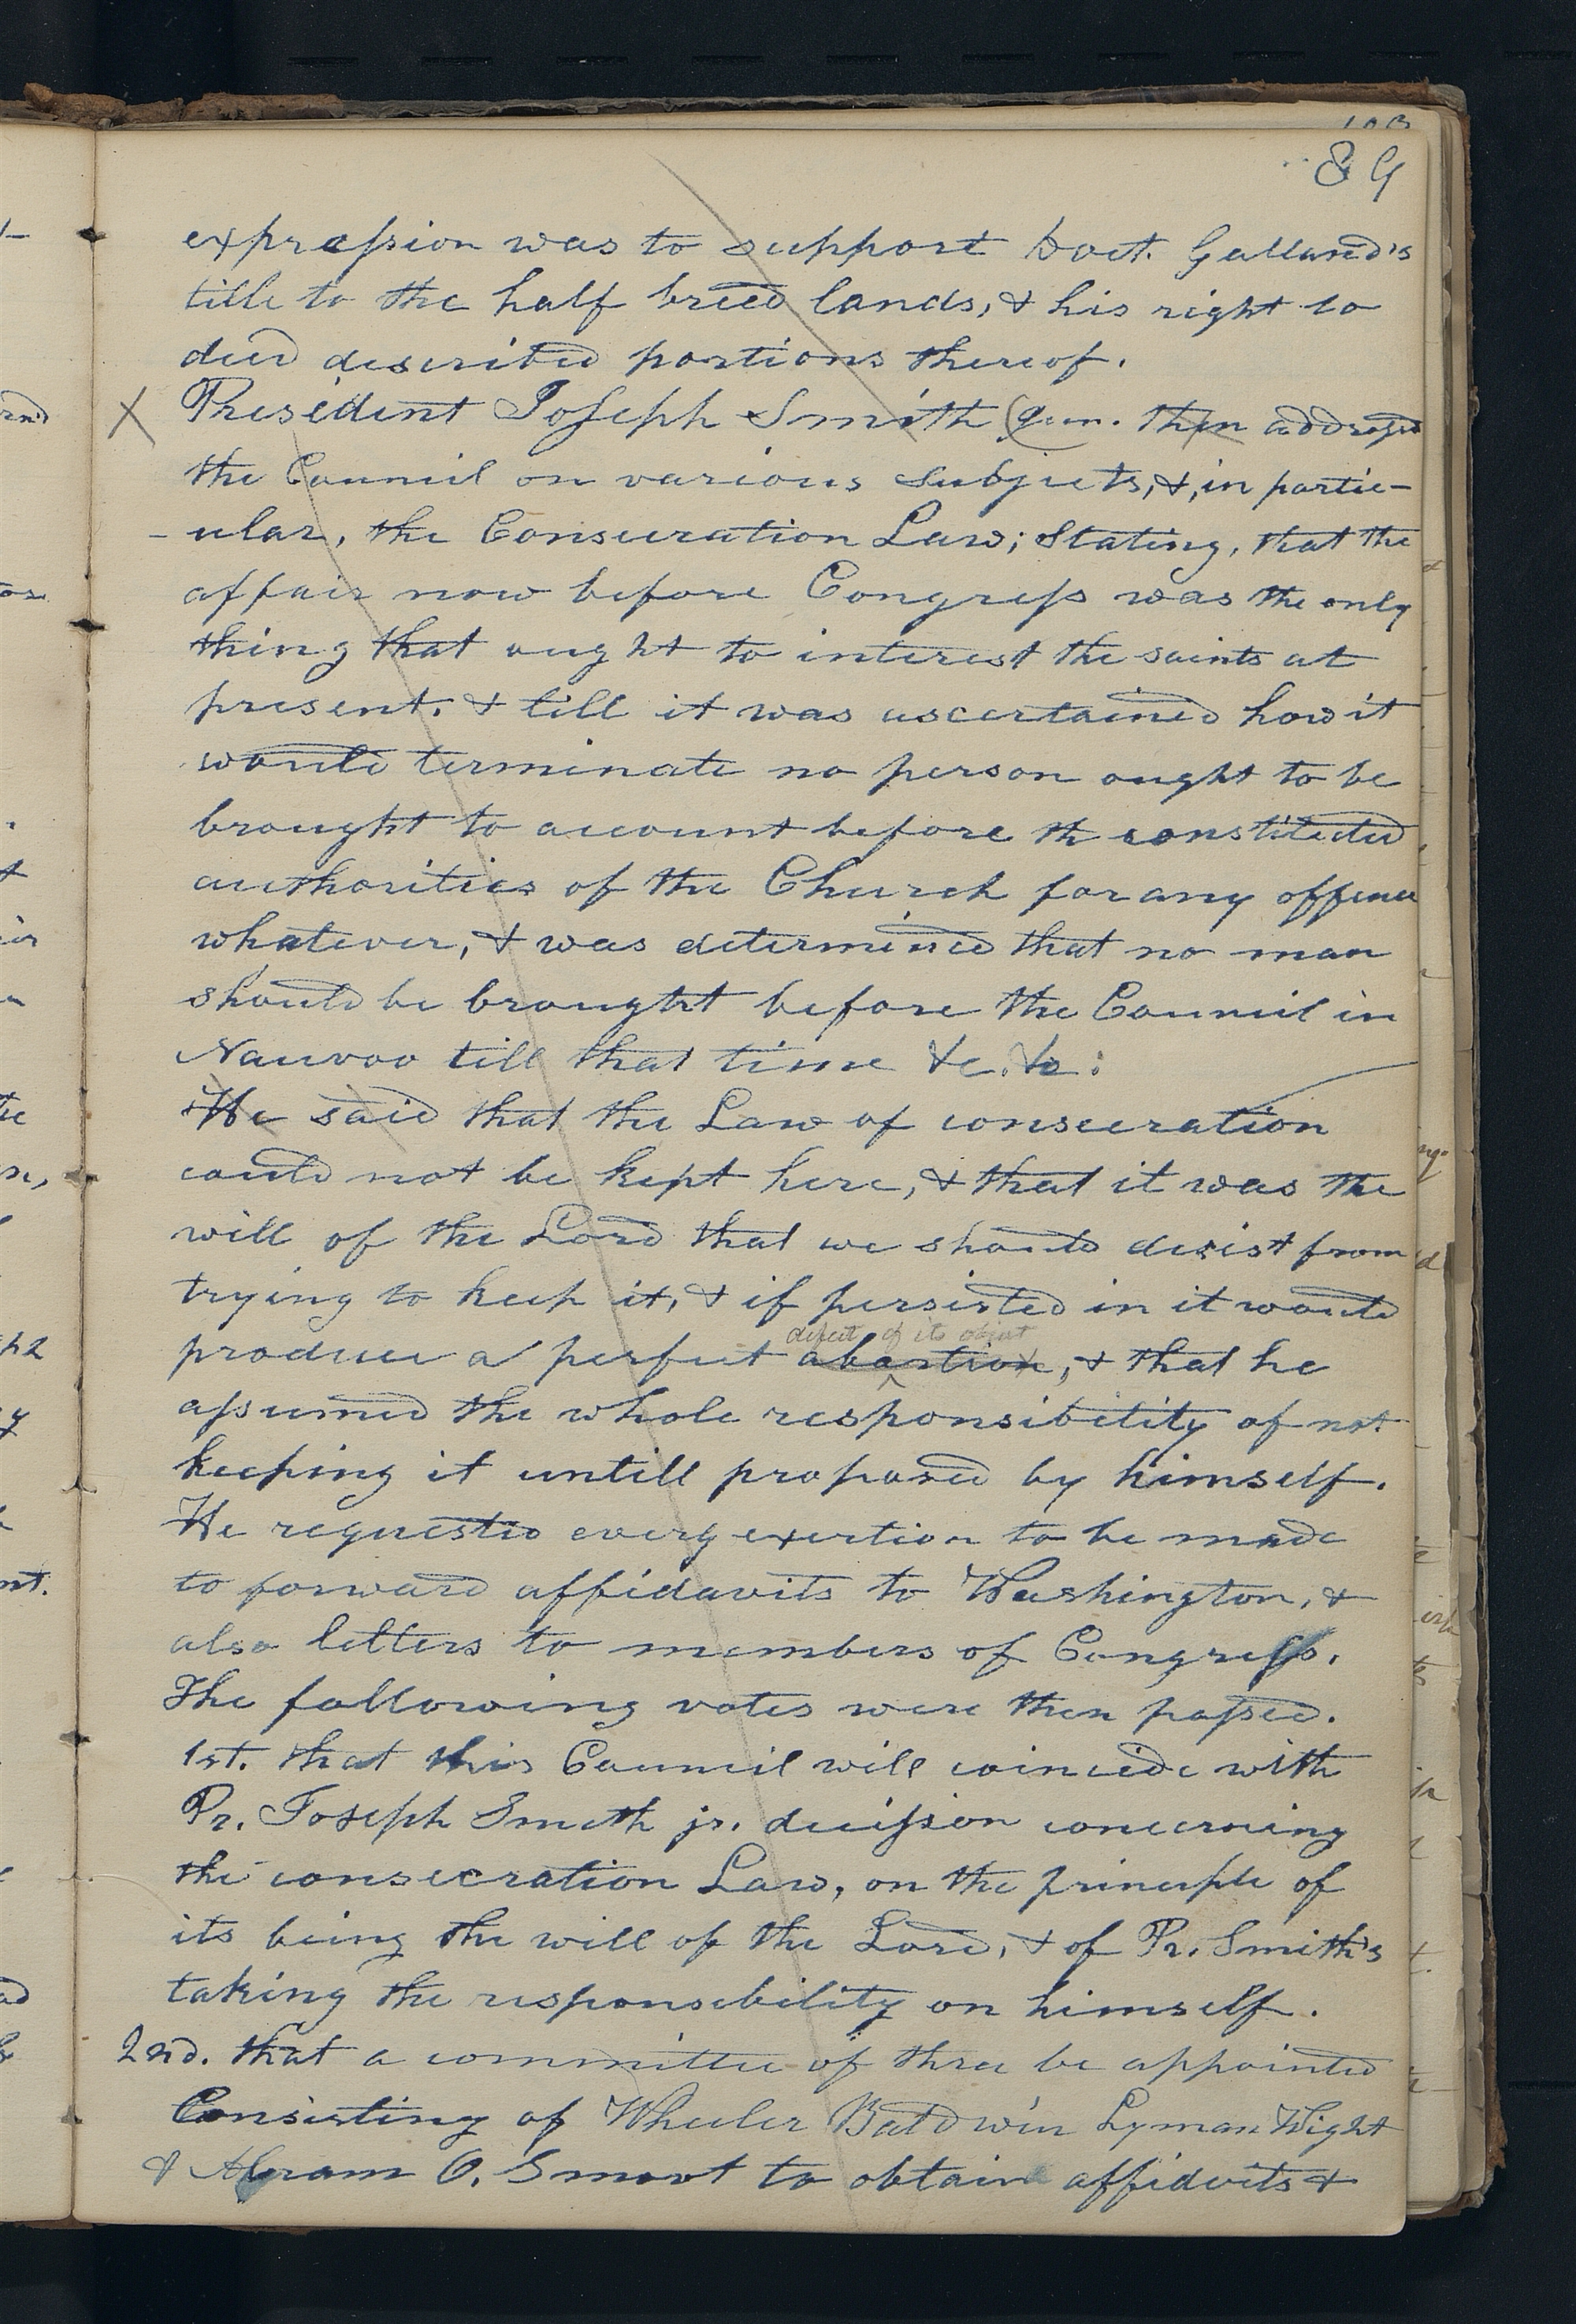 89
expression was to support Doct. Galland's
title to the half breed lands, & his right to
deed described portions thereof.
X President Joseph Smith jun. then addressed
the Council on various subjects, &, in partic-
-ular, the Consecration Law; Stating, that the
affair now before Congress was the only
thing that ought to interest the saints at
present, & till it was ascertained how it
would terminate no person ought to be
brought to account before th constituted
authorities of the Church for any offence
whatever, & was determined that no man
should be brought before the Council in
Nauvoo till that time &c. &c:
He said that the Law of consecration
could not be kept here, & that it was the
will of the Lord that we should desist from
trying to keep it, & if persisted in it would
defeat of its object
produce a perfect abortion, & that he
assumed the whole responsibility of not
keeping it untill proposed by himself.
He requested every exertion to be made
to forward affidavits to Washington, &
also letters to members of Congress.
The following votes were then passed.
1st. that this Council will coincide with
Pr. Joseph Smith jr. decission concerning
the consecration Law, on the principle of
its being the will of the Lord, & of Pr. Smith's
taking the responsibility on himself.
2nd. that a committee of three be appointed
Consisting of Wheeler Baldwin Lyman Wight
& Abram O. Smoot to obtain affidvits &